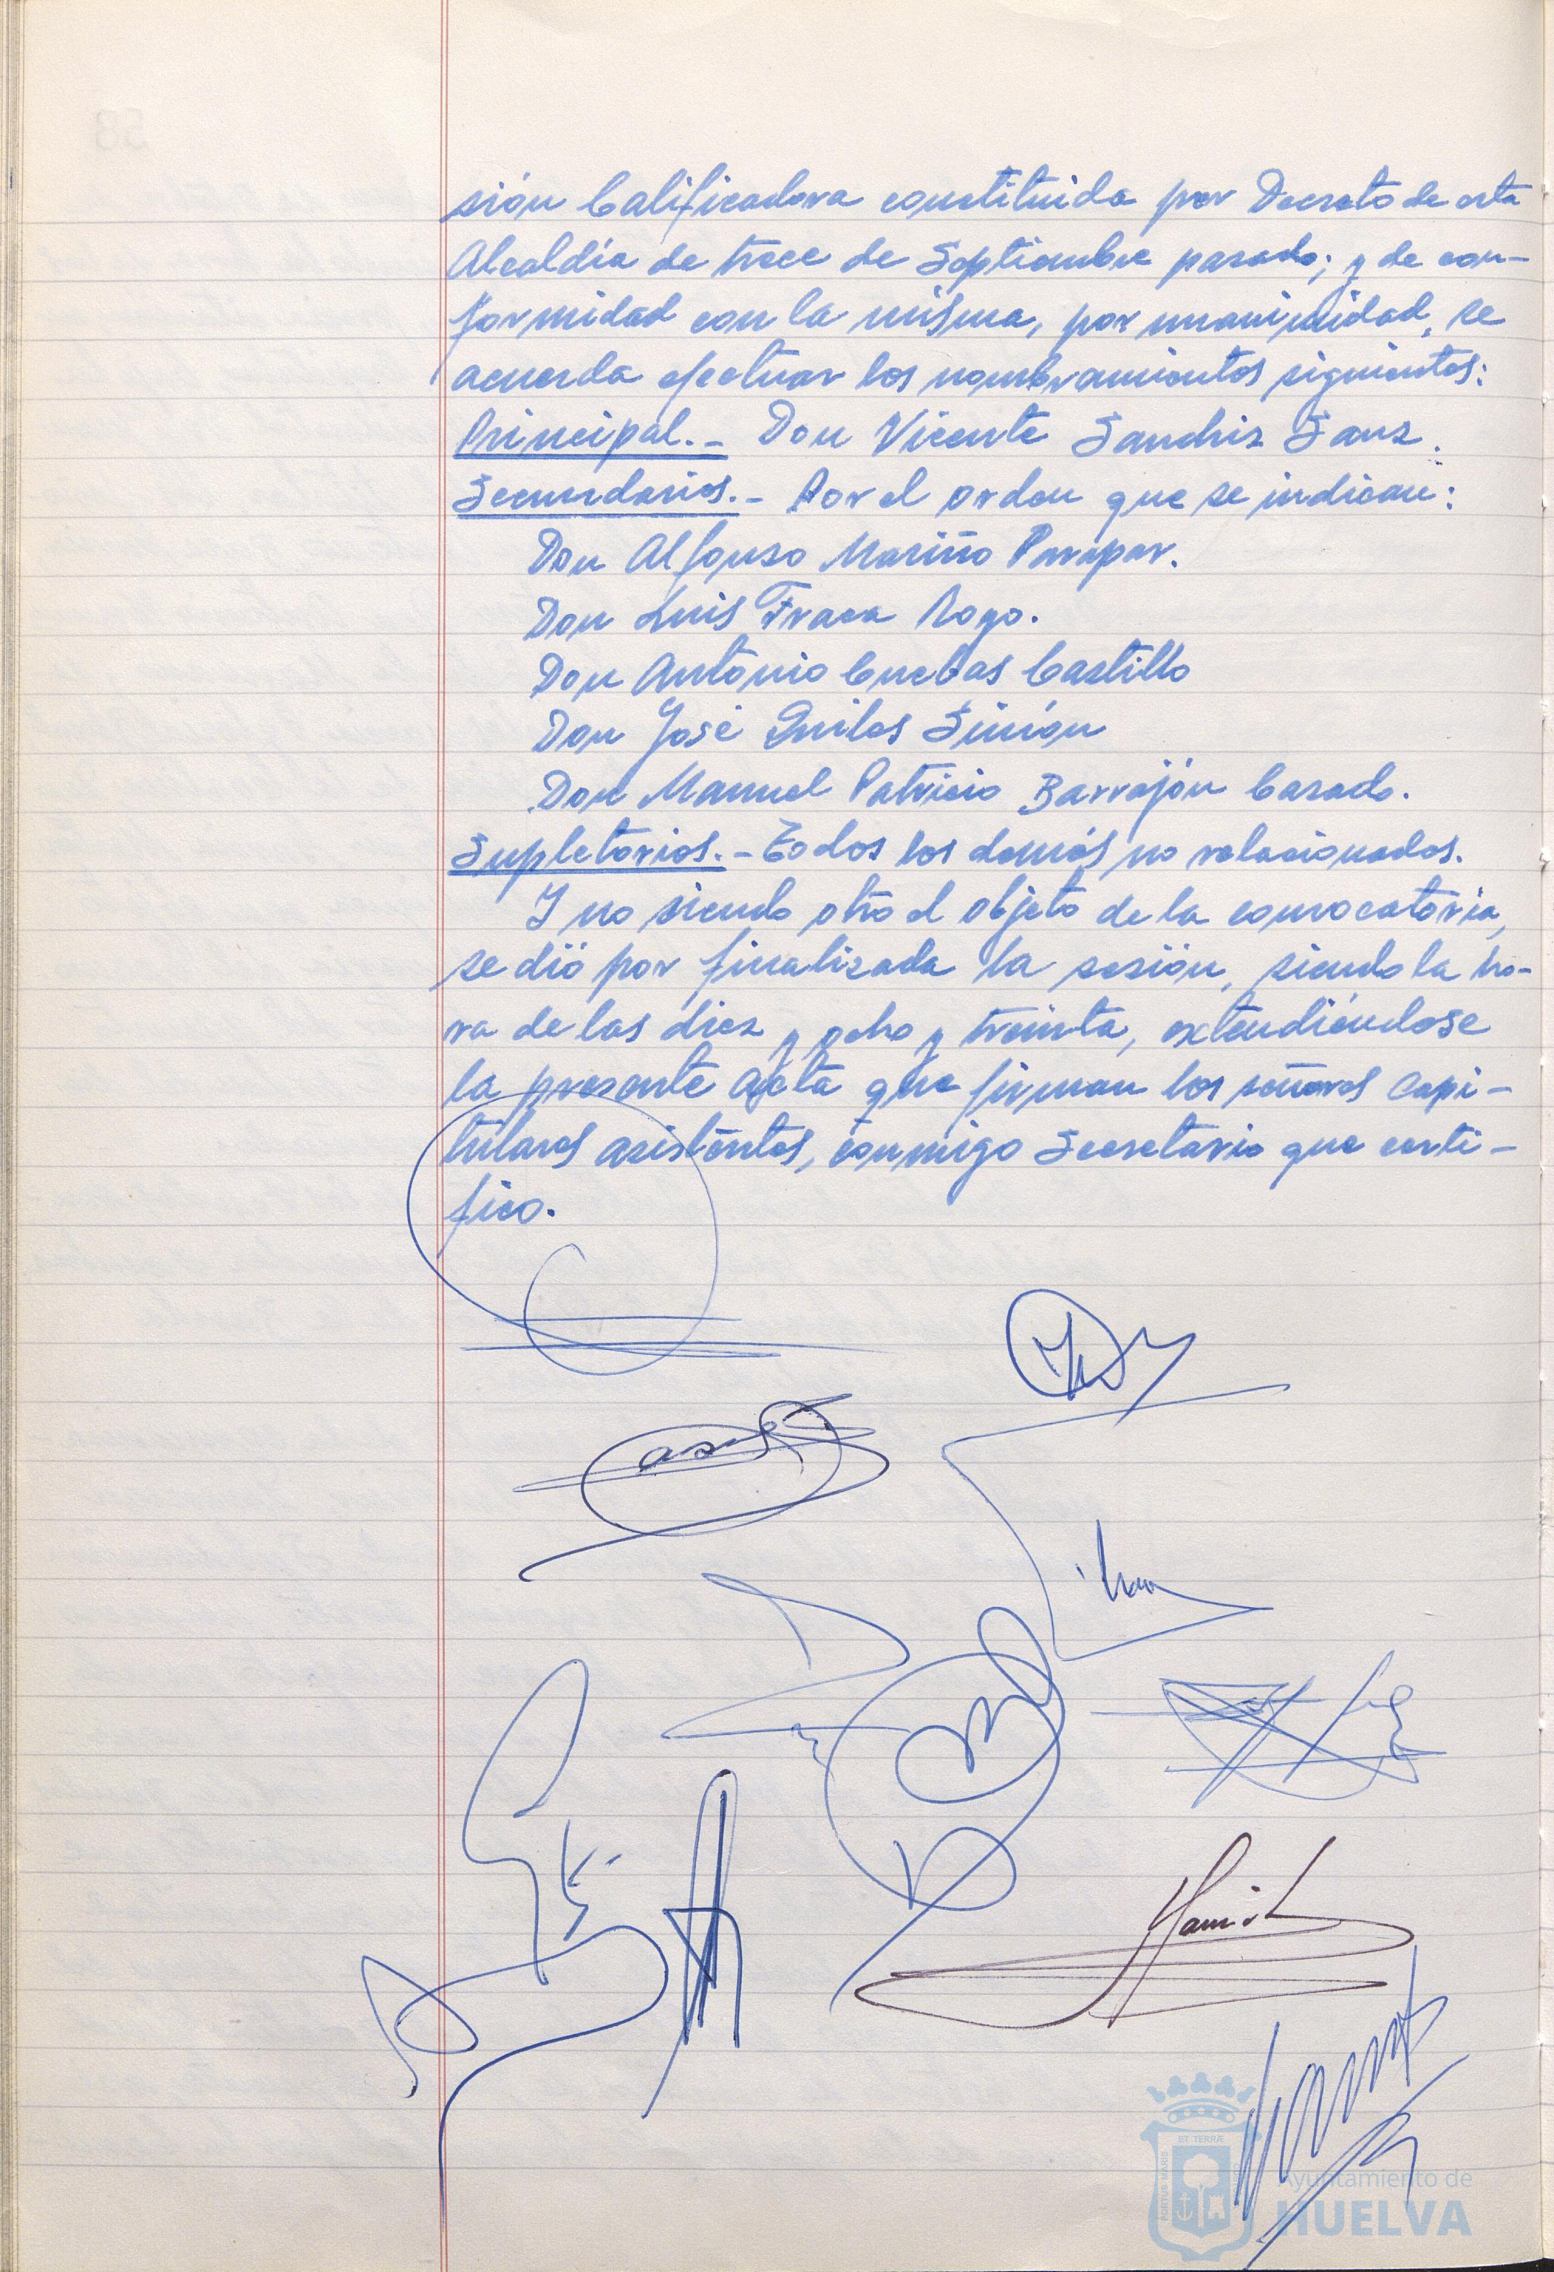 sión Calificadora constituida por Decreto de esta
Alcaldía de trece de Septiembre pasado; y de con-
formidad con la misma, por unanimidad, se
acuerda efectuar los nombramientos siguientes:
Principal.- Don Vicente Sanchis Sanz.
Secundarios.- Por el orden que se indican:
Don Alfonso Mariño Parapar.
Don Luis Fraca Royo.
Don Antonio Cuebas Castillo
Don José Quiles Simón
Don Manuel Patricio Barrajón Casado.
Supletorios.- Todos los demás no relacionados.
Y no siendo otro el objeto de la convocatoria,
se dió por finalizada la sesión, siendo la ho-
ra de las diez y ocho y treinta, extendiéndose
la presente acta que firman los señores Capi-
tulares asistentes, conmigo Secretario que certi-
fico.
ET TERRÆ
PORTUS MARIS
Ayuntamiento de
HUELVA